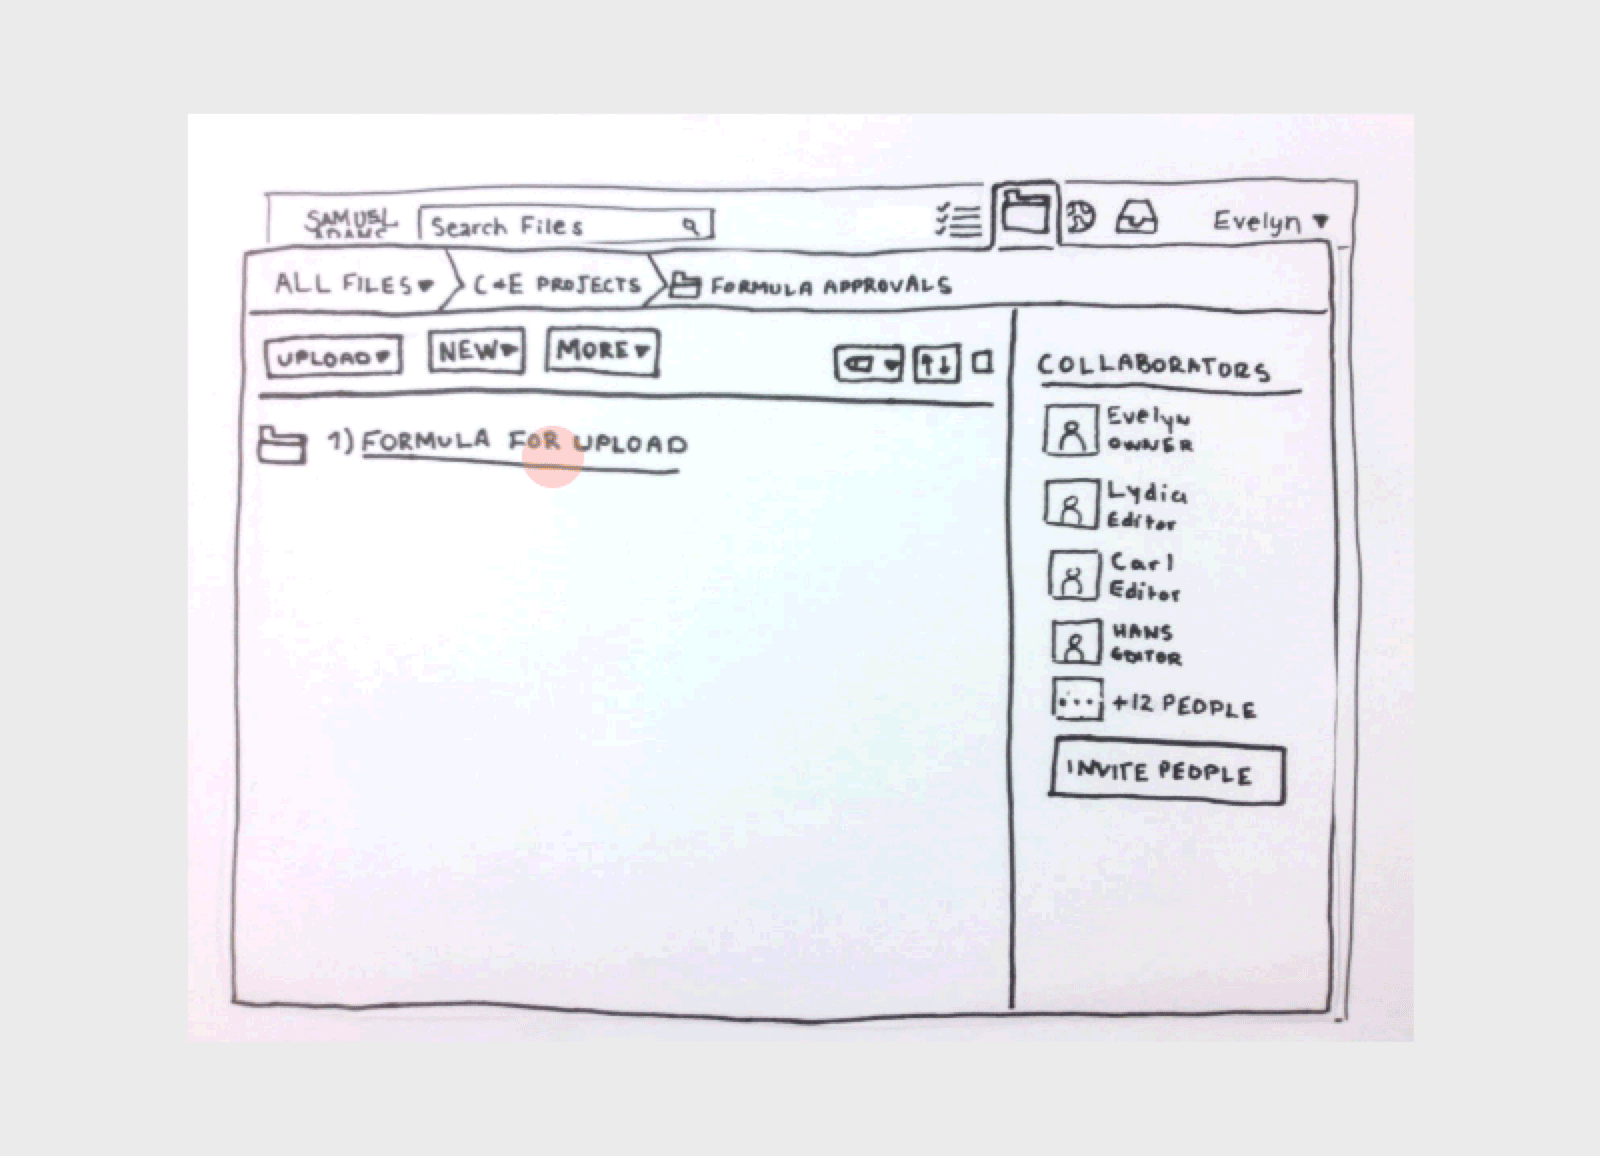 SAMUEL
ADAMS
Search Files
Evelyn
ALL FILES
C+E PROJECTS
FORMULA APPROVALS
UPLOAD
NEW
MORE
1) FORMULA FOR UPLOAD
COLLABORATORS
Evelyn
OWNER
Lydia
Editor
Carl
Editor
HANS
EDITOR
+12 PEOPLE
INVITE PEOPLE